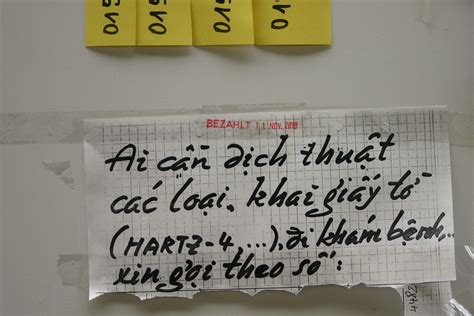 015
015
015
01
BEZAHLT 11. NOV. 2010
Ai cần dịch thuật
các loại, khai giấy tờ
(HARTZ-4,...), đi khám bệnh,..
xin gọi theo số:
4482